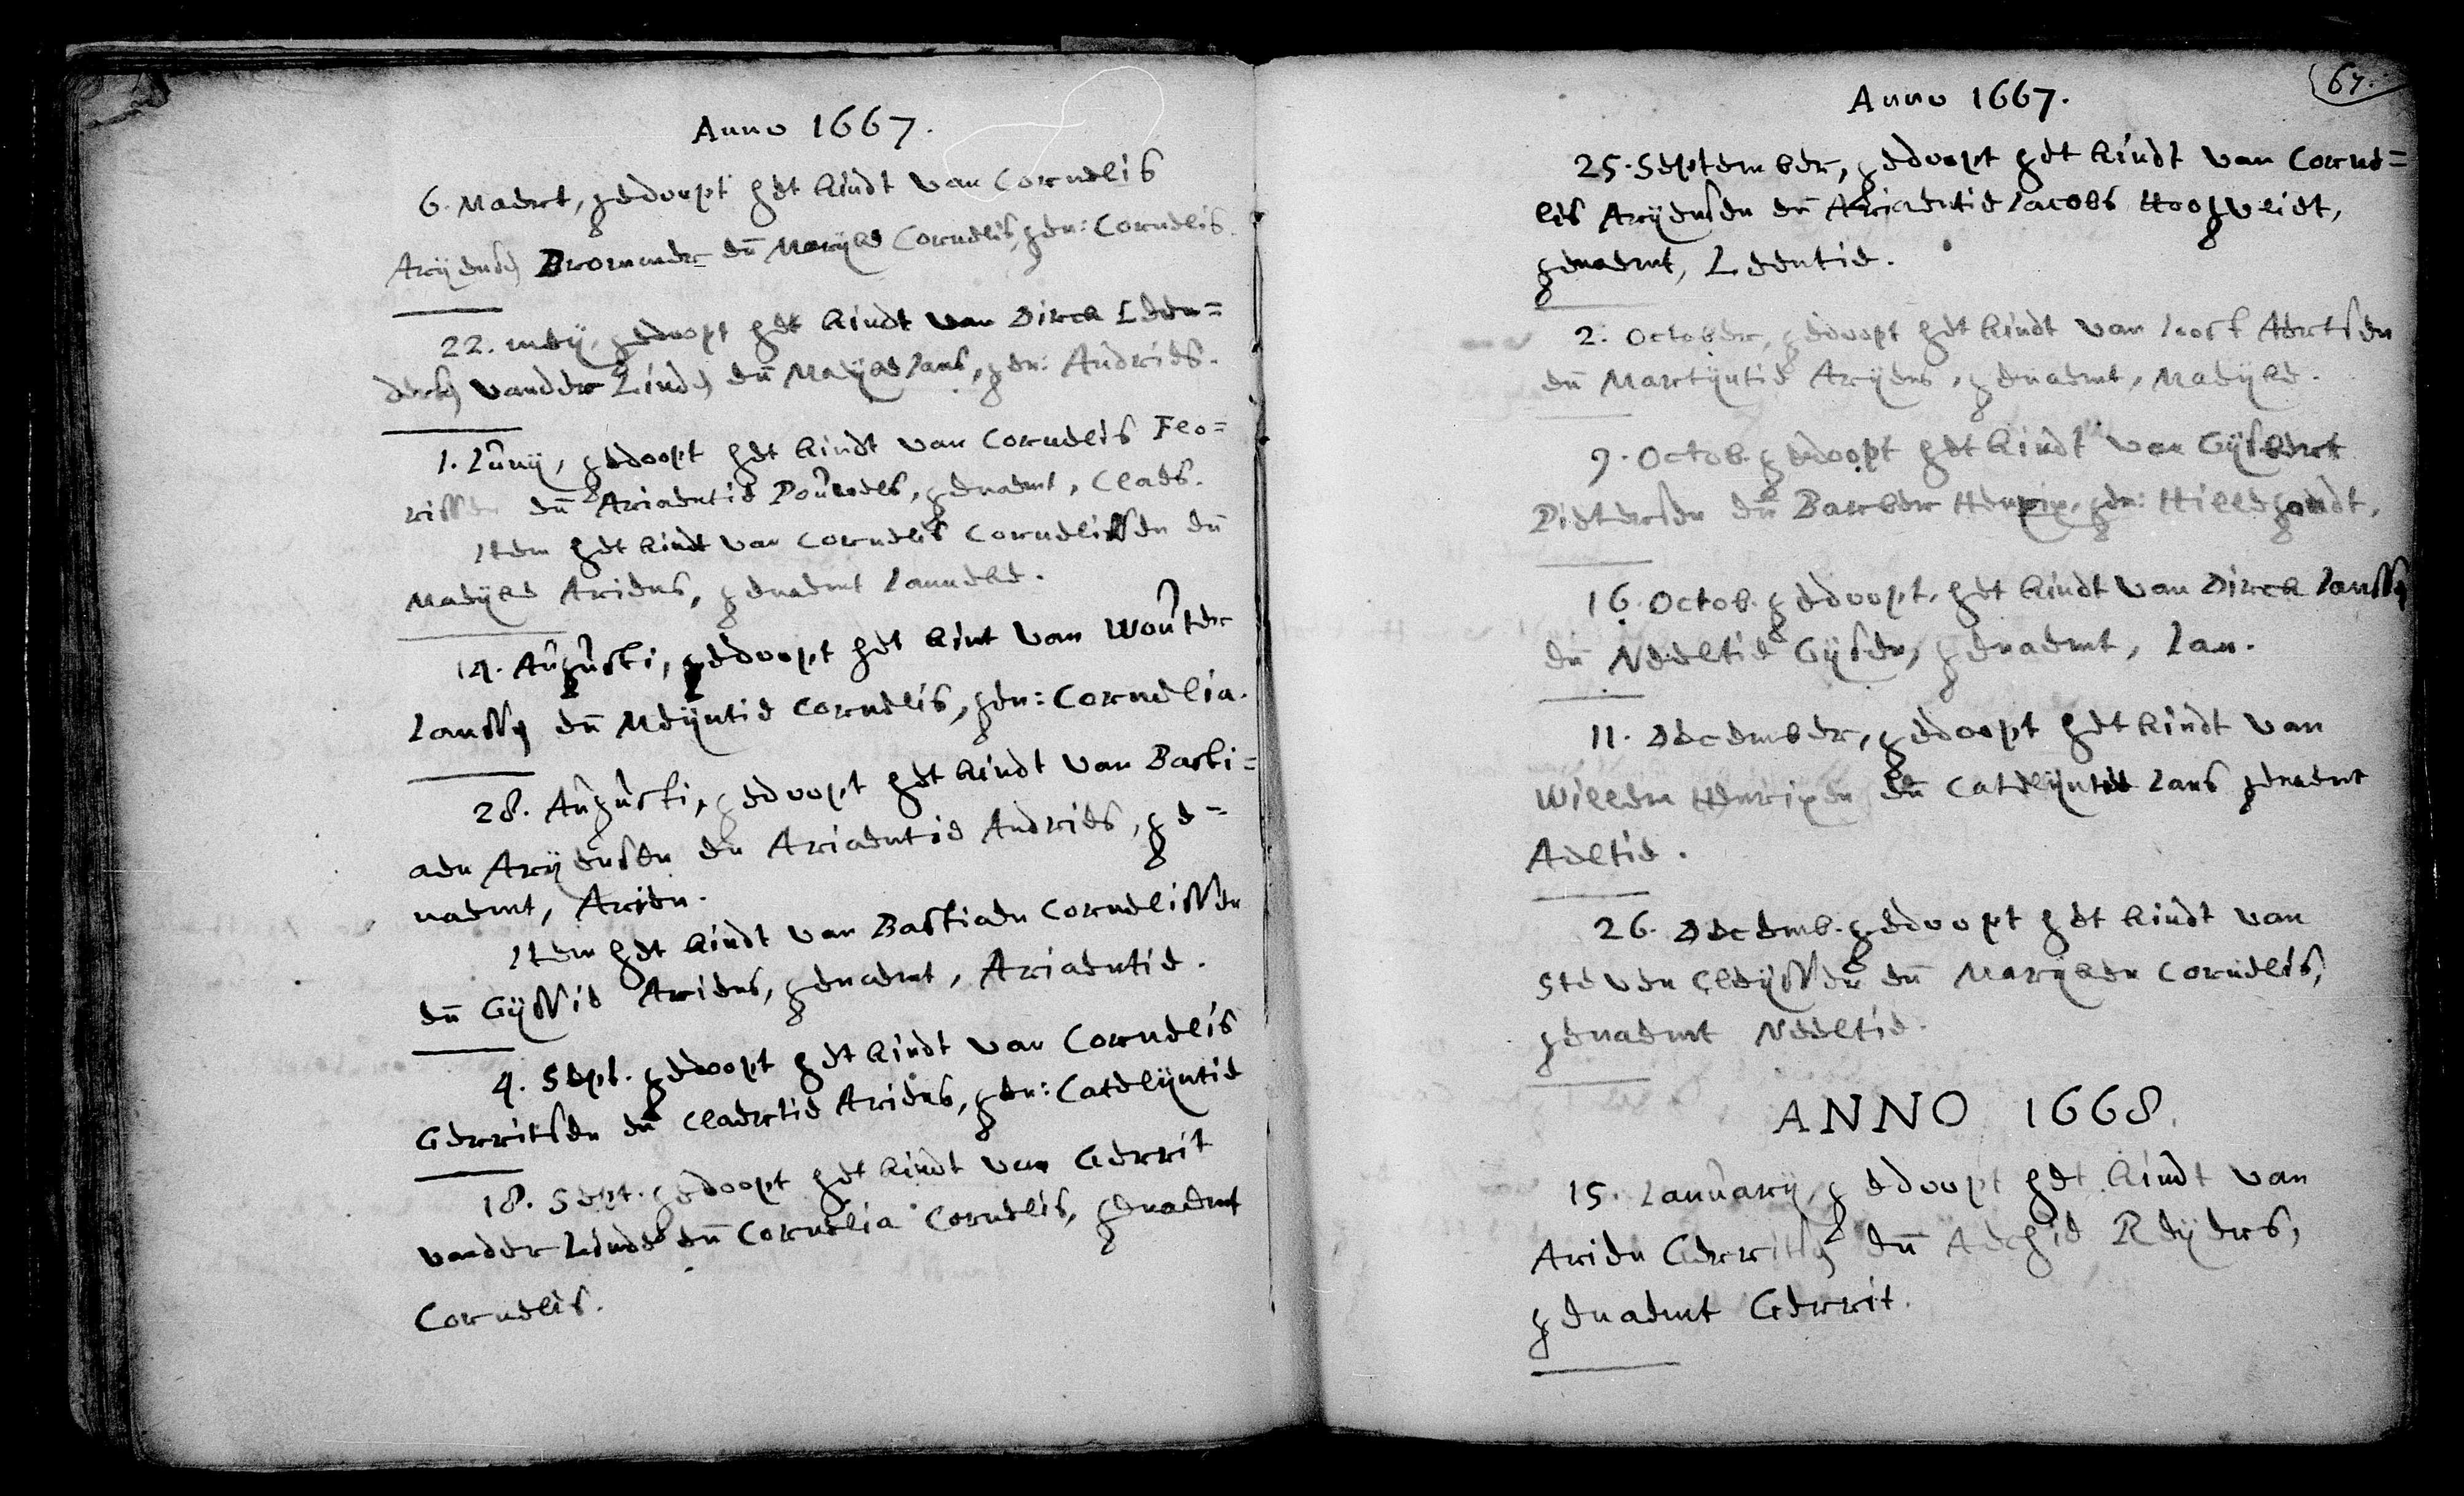 Anno 1667.
6. Maert, gedoopt het kindt van Cornelis
Arijensz Brommer eñ Marijke Cornelis, gen: Cornelis.
22. meij, gedoopt het kindt van Dirck Leen=
dertsz vander Lindẽ eñ Maijke Jans, gen: Andries.
1. Junij, gedoopt het kindt van Cornelis Flo=
rissen eñ Ariaentie Pouwels, genaemt, Claes.
Item het kindt van Cornelis Cornelissen eñ
Maeijke Ariens, genaemt Janneke.
14. Augusti, gedoopt het kint van Wouter
Janssz eñ Meijntie Cornelis, gen: Cornelia.
28. Augusti, gedoopt het kindt van Basti=
aen Arijensen en Ariaentie Andries, ge=
naemt, Arien.
Item het kindt van Bastiaen Cornelissen
eñ Gijssie Ariens, genaemt, Ariaentie.
4. Sept. gedoopt het kindt van Cornelis
Gerritsen eñ Claertie Ariens, gen: Catelijntie
18. Sept. gedoopt het kindt van Gerrit
vander Linde eñ Cornelia Cornelis, genaemt
Cornelis.
67.
Anno 1667.
25. September, gedoopt het kindt van Corne=
lis Arijensen eñ Ariaentie Jacobs Hoogvliet,
genaemt, Leentie.
2. October, gedoopt het kindt van Joost Aertsen
eñ Martijntie Arijens, genaemt, Maeijke.
9. Octob. gedoopt het kindt van Gijsbert
Pietersen eñ Barber Henrix, gen: Hillegondt.
16. Octob. gedoopt, het kindt van Dirck Janssz
eñ Neeltie Gijsen, genaemt, Jan.
11. December, gedoopt het kindt van
Willem Henrixen eñ Catelijntie Jans genaemt
Aeltie.
26. Decemb. gedoopt het kindt van
Steven Cleijssen eñ Marijken Cornelis,
genaemt Neeltie.
ANNO 1668.
15. January, gedoopt het kindt van
Arien Gerritsz eñ Aechie Reijers,
genaemt Gerrit.